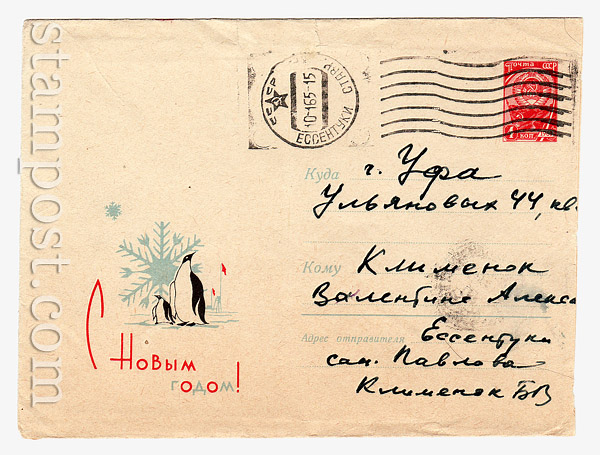 stampost.com
СССР
10-1 65-15
ЕССЕНТУКИ СТАВР
Почта СССР
4 коп
Куда г. Уфа
Ульяновых 44, кв
Кому Клименок
Валентине Алекса
Адрес отправителя Ессентуки
сан. Павлова
Клименок БВ
С Новым
годом!